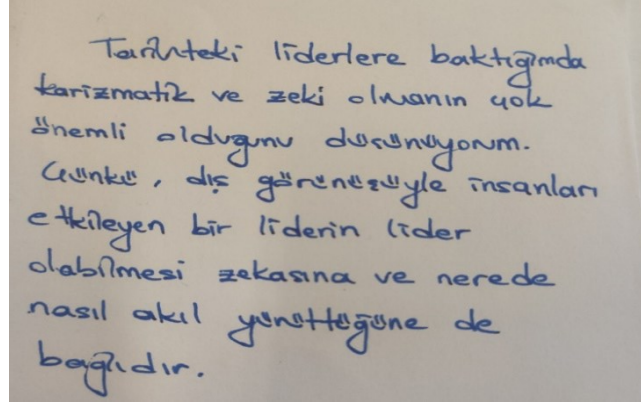 Tarihteki liderlere baktığımda
karizmatik ve zeki olmanın çok
önemli olduğunu düşünüyorum.
Çünkü, dış görünüşüyle insanları
etkileyen bir liderin lider
olabilmesi zekasına ve nerede
nasıl akıl yürüttüğüne de
bağlıdır.